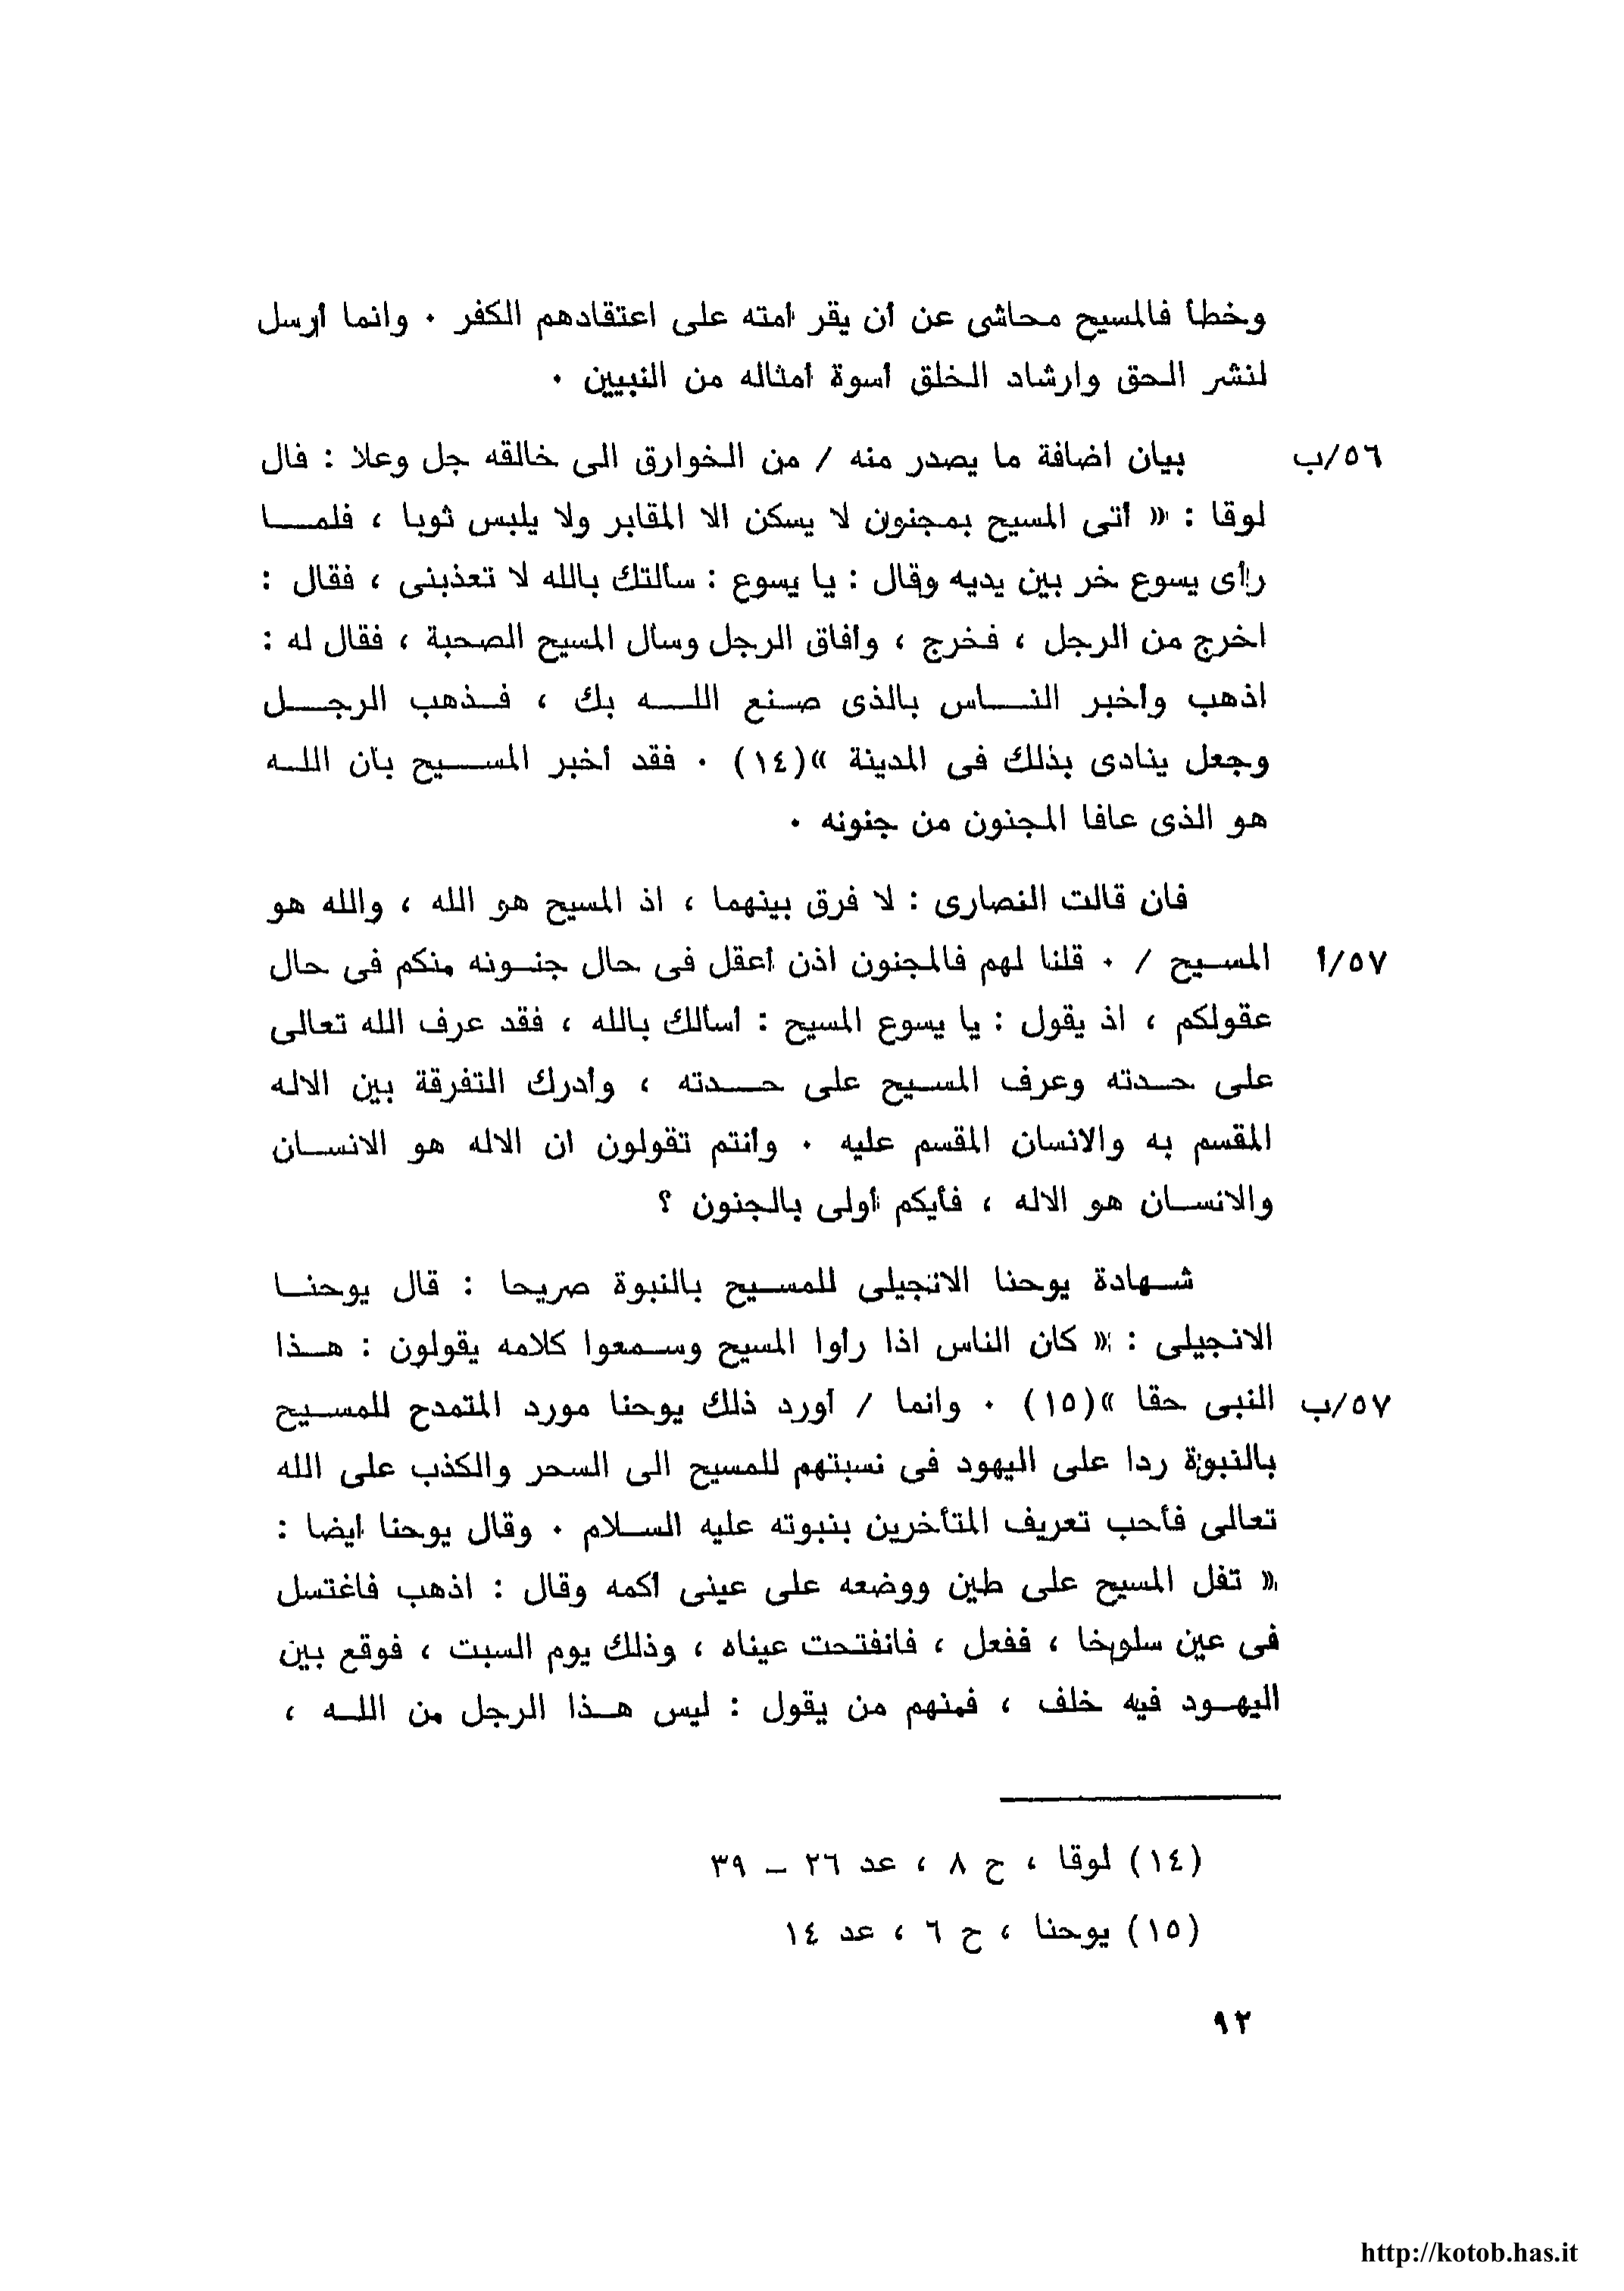 وخطأ فالمسيح محاشى عن أن يقر أمته على اعتقادهم الكفر ٠ وانما أرسل
لنشر الحق وارشاد الخلق أسوة أمثاله من النبيين ٠
٥٦/ب
بيان اضافة ما يصدر منه / من الخوارق الى خالقه جل وعلا : قال
لوقا : « أتى المسيح بمجنون لا يسكن الا المقابر ولا يلبس ثوبا ، فلمـــا
رأى يسوع خر بين يديه وقال : يا يسوع : سألتك بالله لا تعذبنى ، فقال :
اخرج من الرجل ، فخرج ، وأفاق الرجل وسأل المسيح الصحبة ، فقال له :
اذهب وأخبر النـــاس بالذى صـنع اللـــه بك ، فـذهب الرجـــل
وجعل ينادى بذلك فى المدينة »(١٤) ٠ فقد أخبر المســـيح بأن اللــه
هو الذى عافا المجنون من جنونه ٠
فان قالت النصارى : لا فرق بينهما ، اذ المسيح هو الله ، والله هو
٥٧/أ
المسـيح / ٠ قلنا لهم فالمجنون اذن أعقل فى حال جنـونه منكم فى حال
عقولكم ، اذ يقول : يا يسوع المسيح : أسألك بالله ، فقد عرف الله تعالى
على حـدته وعرف المسـيح على حــدته ، وأدرك التفرقة بين الاله
المقسم به والانسان المقسم عليه ٠ وأنتم تقولون ان الاله هو الانسـان
والانسـان هو الاله ، فأيكم أولى بالجنون ؟
شـهادة يوحنا الانجيلى للمسـيح بالنبوة صريحا : قال يوحنـا
الانجيلى : « كان الناس اذا رأوا المسيح وسـمعوا كلامه يقولون : هـذا
٥٧/ب
النبى حقا »(١٥) ٠ وانما / أورد ذلك يوحنا مورد المتمدح للمسـيح
بالنبوة ردا على اليهود فى نسبتهم للمسيح الى السحر والكذب على الله
تعالى فأحب تعريف المتأخرين بنبوته عليه السـلام ٠ وقال يوحنا ايضا :
« تفل المسيح على طين ووضعه على عينى أكمه وقال : اذهب فاغتسل
فى عين سلوخا ، ففعل ، فانفتحت عيناه ، وذلك يوم السبت ، فوقع بين
اليهـود فيه خلف ، فمنهم من يقول : ليس هـذا الرجل من اللــه ،
(١٤) لوقا ، ح ٨ ، عد ٢٦ – ٣٩
(١٥) يوحنا ، ح ٦ ، عد ١٤
٩٢
http://kotob.has.it